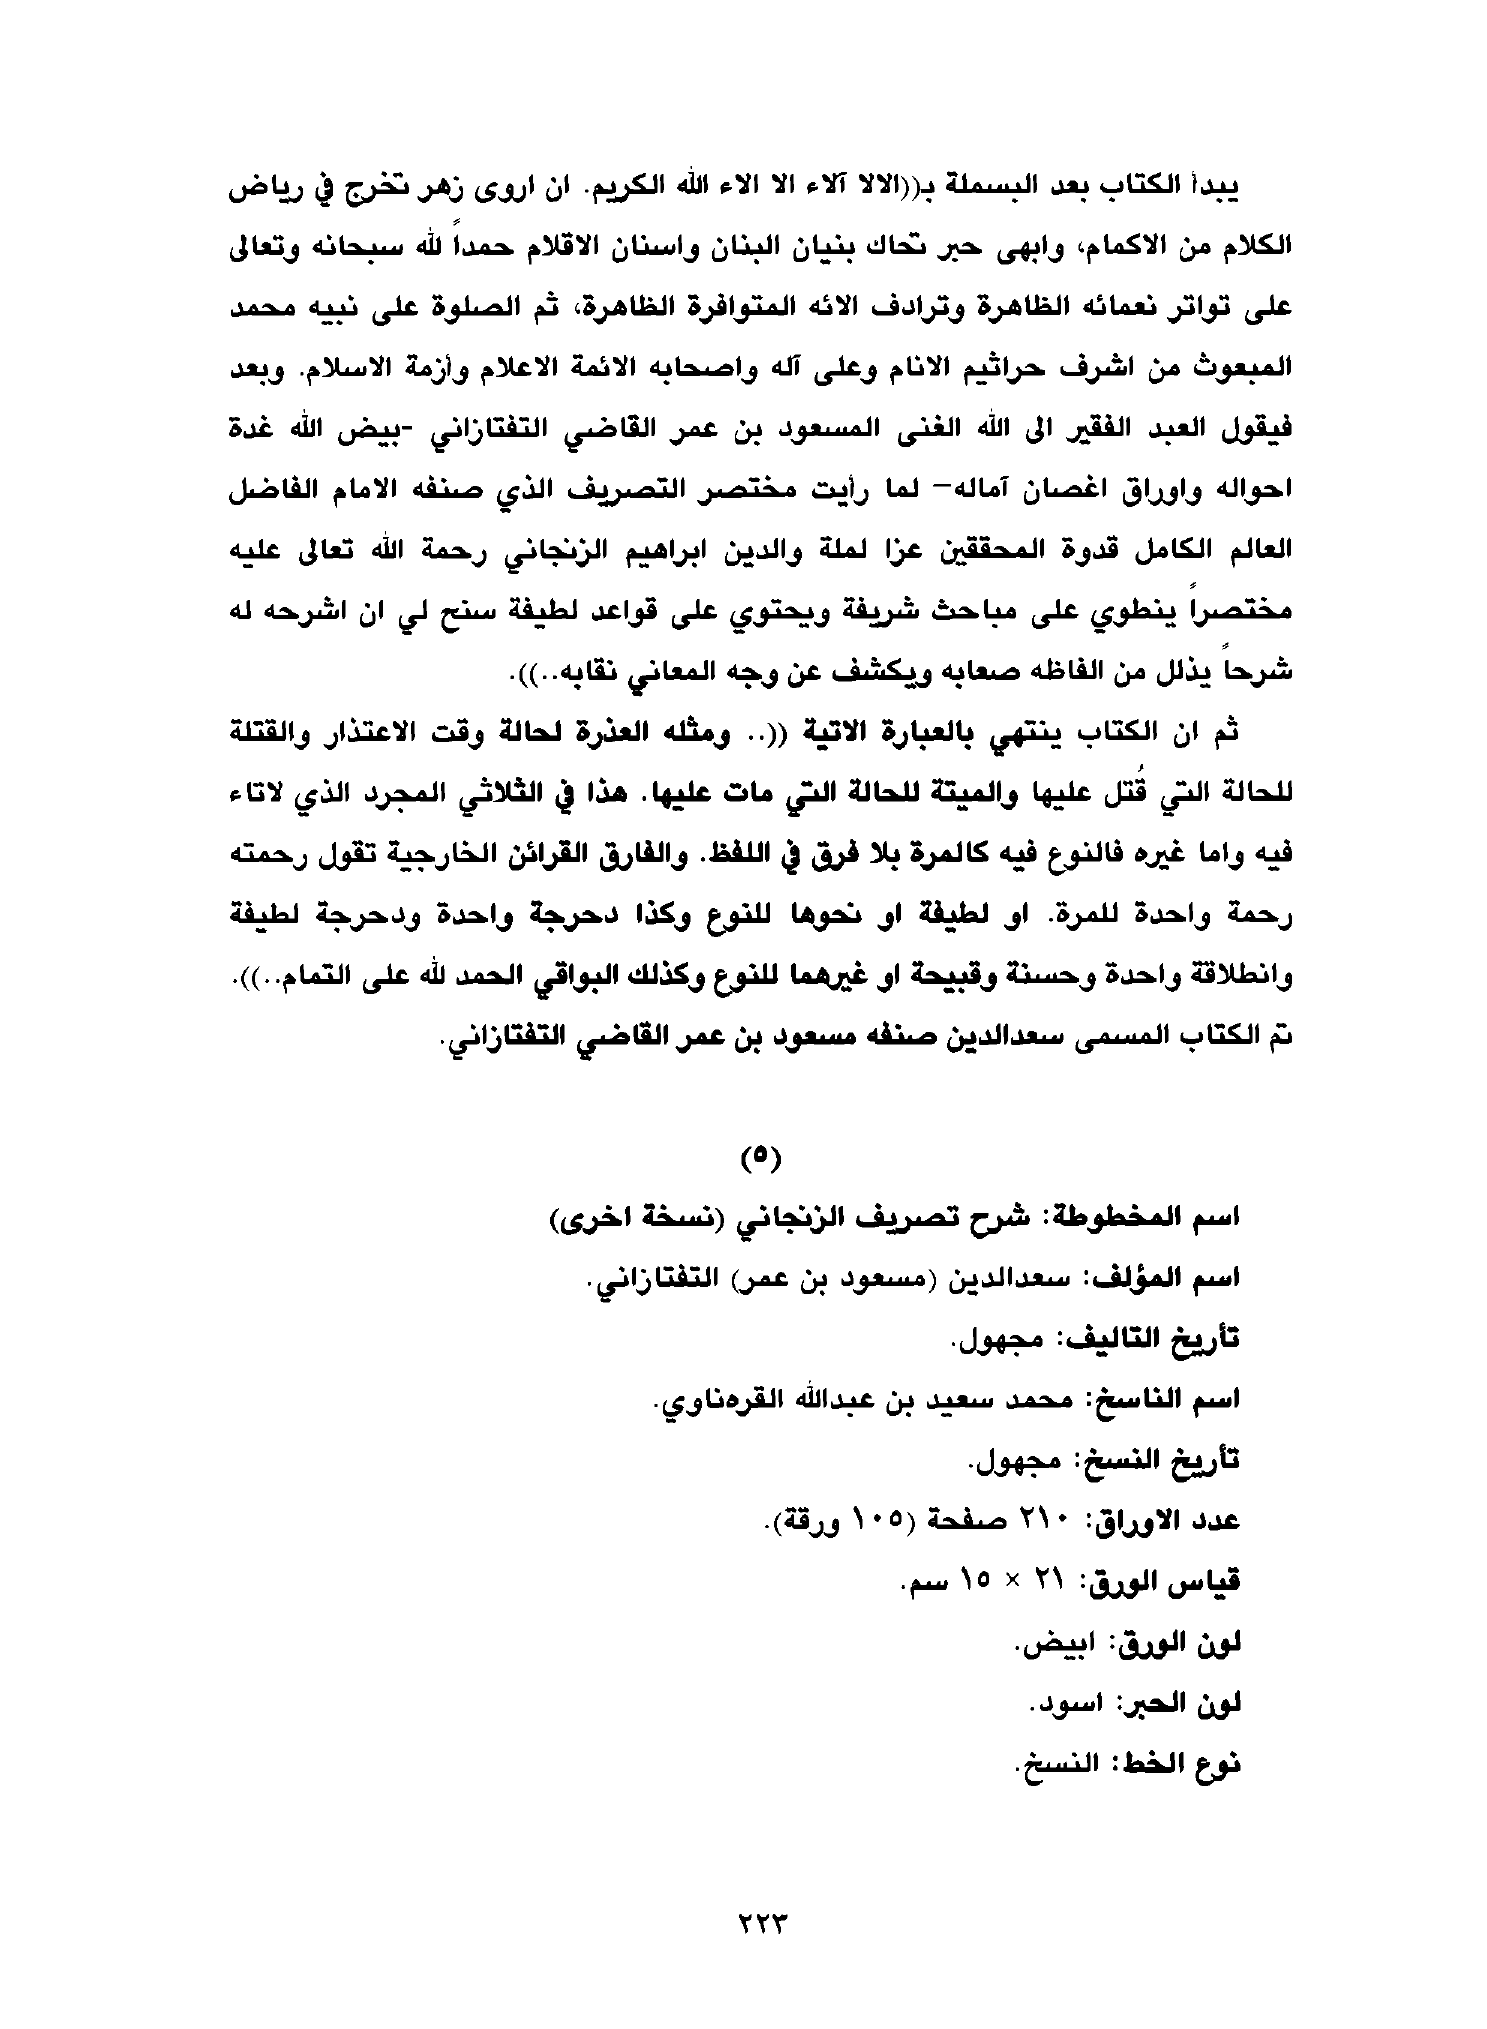 يبدأ الكتاب بعد البسملة بـ((الالا آلاء الا الاء الله الكريم. ان اروى زهر تخرج في رياض
الكلام من الاكمام، وابهى حبر تحاك بنيان البنان واسنان الاقلام حمداً لله سبحانه وتعالى
على تواتر نعمائه الظاهرة وترادف الائه المتوافرة الظاهرة، ثم الصلوة على نبيه محمد
المبعوث من اشرف حراثيم الانام وعلى آله واصحابه الائمة الاعلام وأزمة الاسلام. وبعد
فيقول العبد الفقير الى الله الغنى المسعود بن عمر القاضي التفتازاني -بيض الله غدة
احواله واوراق اغصان آماله- لما رأيت مختصر التصريف الذي صنفه الامام الفاضل
العالم الكامل قدوة المحققين عزا لملة والدين ابراهيم الزنجاني رحمة الله تعالى عليه
مختصراً ينطوي على مباحث شريفة ويحتوي على قواعد لطيفة سنح لي ان اشرحه له
شرحاً يذلل من الفاظه صعابه ويكشف عن وجه المعاني نقابه..)).
ثم ان الكتاب ينتهي بالعبارة الاتية ((.. ومثله العذرة لحالة وقت الاعتذار والقتلة
للحالة التي قُتل عليها والميتة للحالة التي مات عليها. هذا في الثلاثي المجرد الذي لاتاء
فيه واما غيره فالنوع فيه كالمرة بلا فرق في اللفظ. والفارق القرائن الخارجية تقول رحمته
رحمة واحدة للمرة. او لطيفة او نحوها للنوع وكذا دحرجة واحدة ودحرجة لطيفة
وانطلاقة واحدة وحسنة وقبيحة او غيرهما للنوع وكذلك البواقي الحمد لله على التمام..)).
تم الكتاب المسمى سعدالدين صنفه مسعود بن عمر القاضي التفتازاني.
(٥)
اسم المخطوطة: شرح تصريف الزنجاني (نسخة اخرى)
اسم المؤلف: سعدالدين (مسعود بن عمر) التفتازاني.
تأريخ التاليف: مجهول.
اسم الناسخ: محمد سعيد بن عبدالله القرەناوي.
تأريخ النسخ: مجهول.
عدد الاوراق: ٢١٠ صفحة (١٠٥ ورقة).
قياس الورق: ٢١ × ١٥ سم.
لون الورق: ابيض.
لون الحبر: اسود.
نوع الخط: النسخ.
٢٢٣